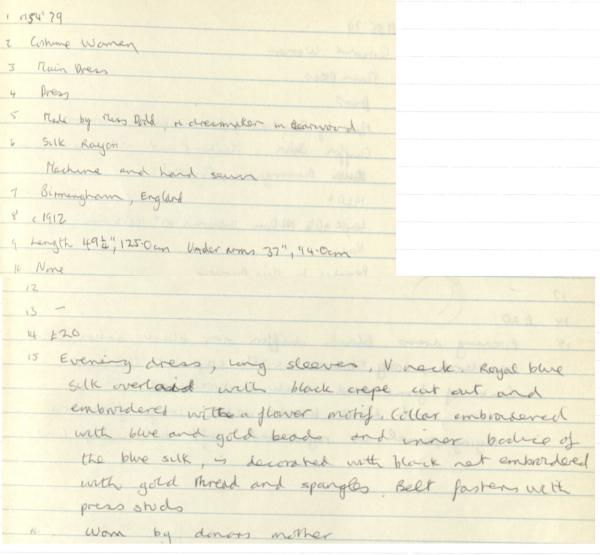 1 M54'79
2 Costume Women
3 Main Dress
4 Dress
5 Made by Miss Dodd, a dressmaker in Bearwood
6 Silk Rayon
Machine and hand sewn
7 Birmingham, England
8 c1912
9 Length 49¼", 125.0cm Under arms 37", 94.0cm
10 None
12
13 –
14 £20
15 Evening dress, long sleeves, V neck. Royal blue
silk overlaid with black crepe cut out and
embroidered with a flower motif. Collar embroidered
with blue and gold beads and inner bodice of
the blue silk, is decorated with black net embroidered
with gold thread and spangles. Belt fastens with
press studs
Worn by donors mother